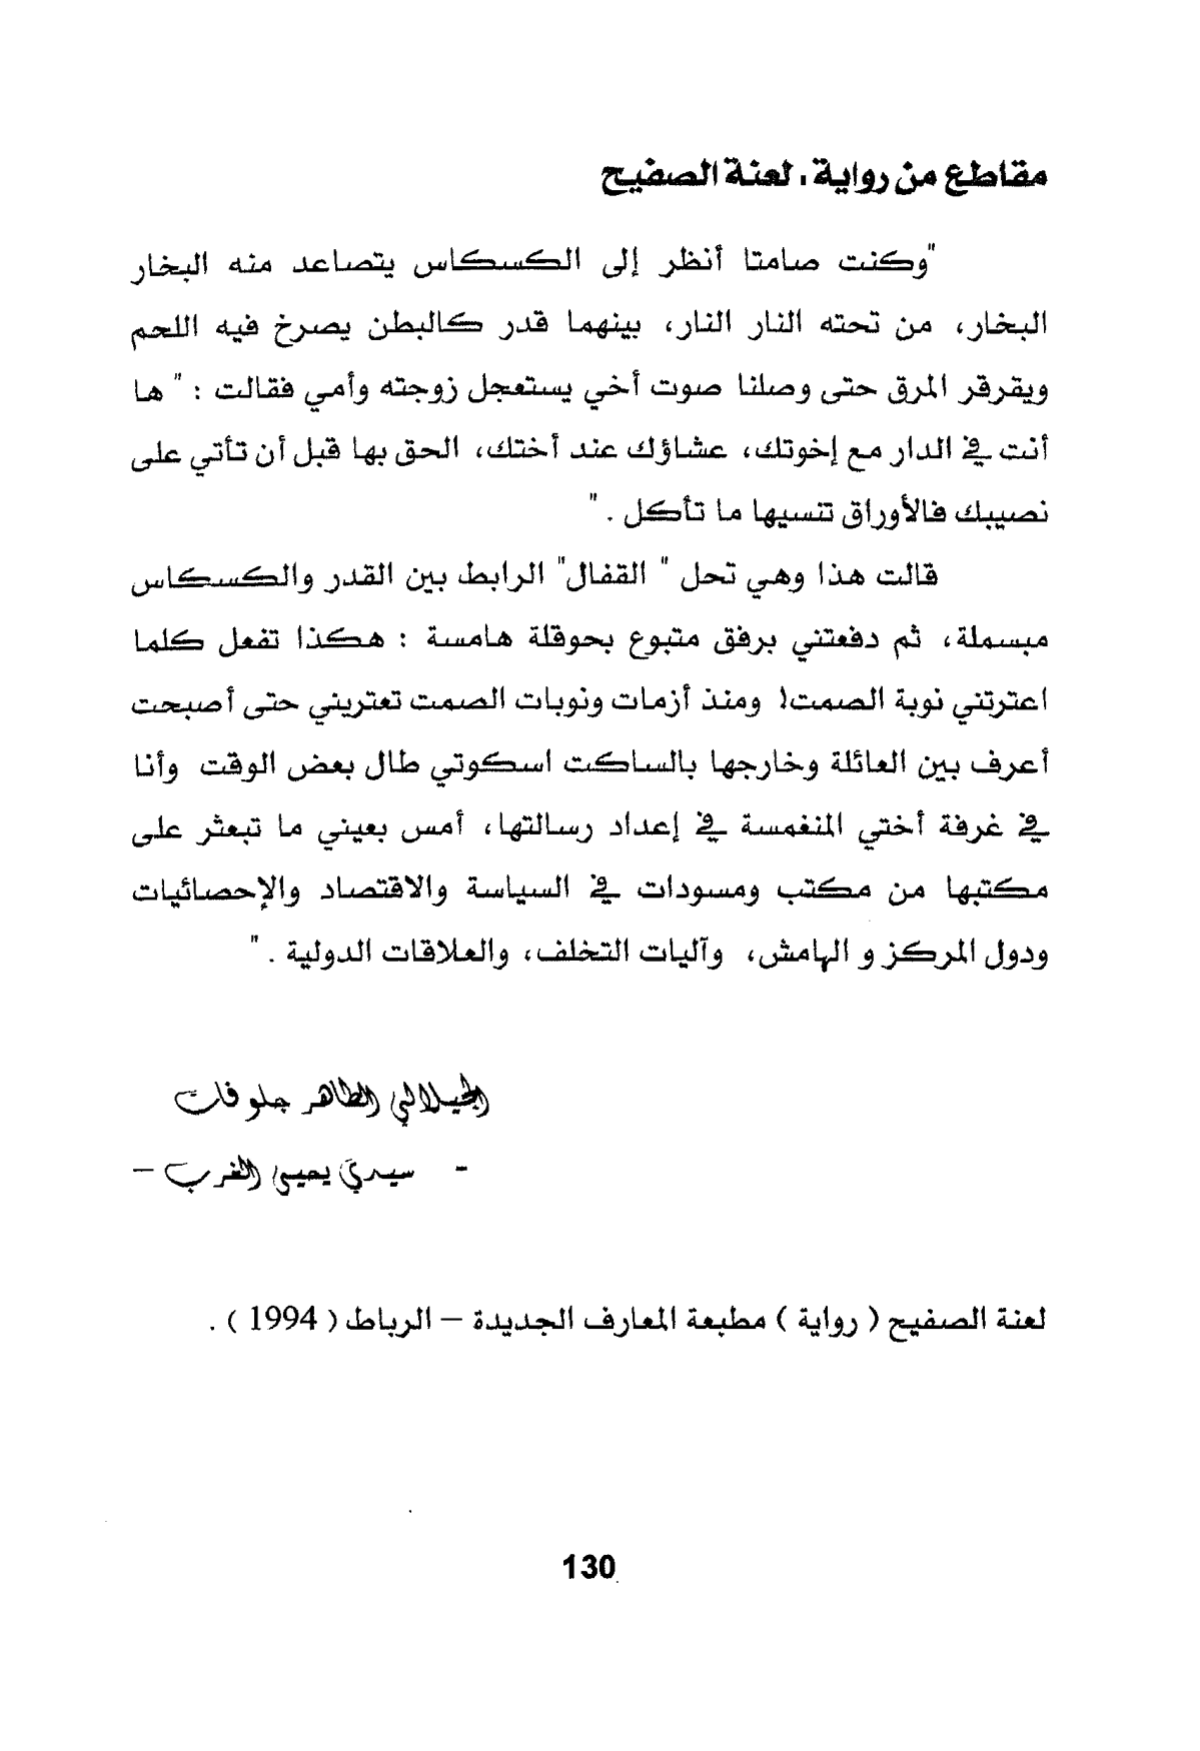 مقاطع من رواية، لعنة الصفيح
"وكنت صامتا أنظر إلى الكسكاس يتصاعد منه البخار
البخار، من تحته النار النار، بينهما قدر كالبطن يصرخ فيه اللحم
ويقرقر المرق حتى وصلنا صوت أخي يستعجل زوجته وأمي فقالت : " ها
أنت في الدار مع إخوتك، عشاؤك عند أختك، الحق بها قبل أن تأتي على
نصيبك فالأوراق تنسيها ما تأكل . "
قالت هذا وهي تحل " القفال" الرابط بين القدر والكسكاس
مبسملة، ثم دفعتني برفق متبوع بحوقلة هامسة : هكذا تفعل كلما
اعترتني نوبة الصمت! ومنذ أزمات ونوبات الصمت تعتريني حتى أصبحت
أعرف بين العائلة وخارجها بالساكت اسكوتي طال بعض الوقت وأنا
في غرفة أختي المنغمسة في إعداد رسالتها، أمس بعيني ما تبعثر على
مكتبها من مكتب ومسودات في السياسة والاقتصاد والإحصائيات
ودول المركز و الهامش، وآليات التخلف، والعلاقات الدولية . "
الجيلالي الطاهر جلوفات
- سيدي يحيى الغرب –
لعنة الصفيح ( رواية ) مطبعة المعارف الجديدة – الرباط ( 1994 ) .
130